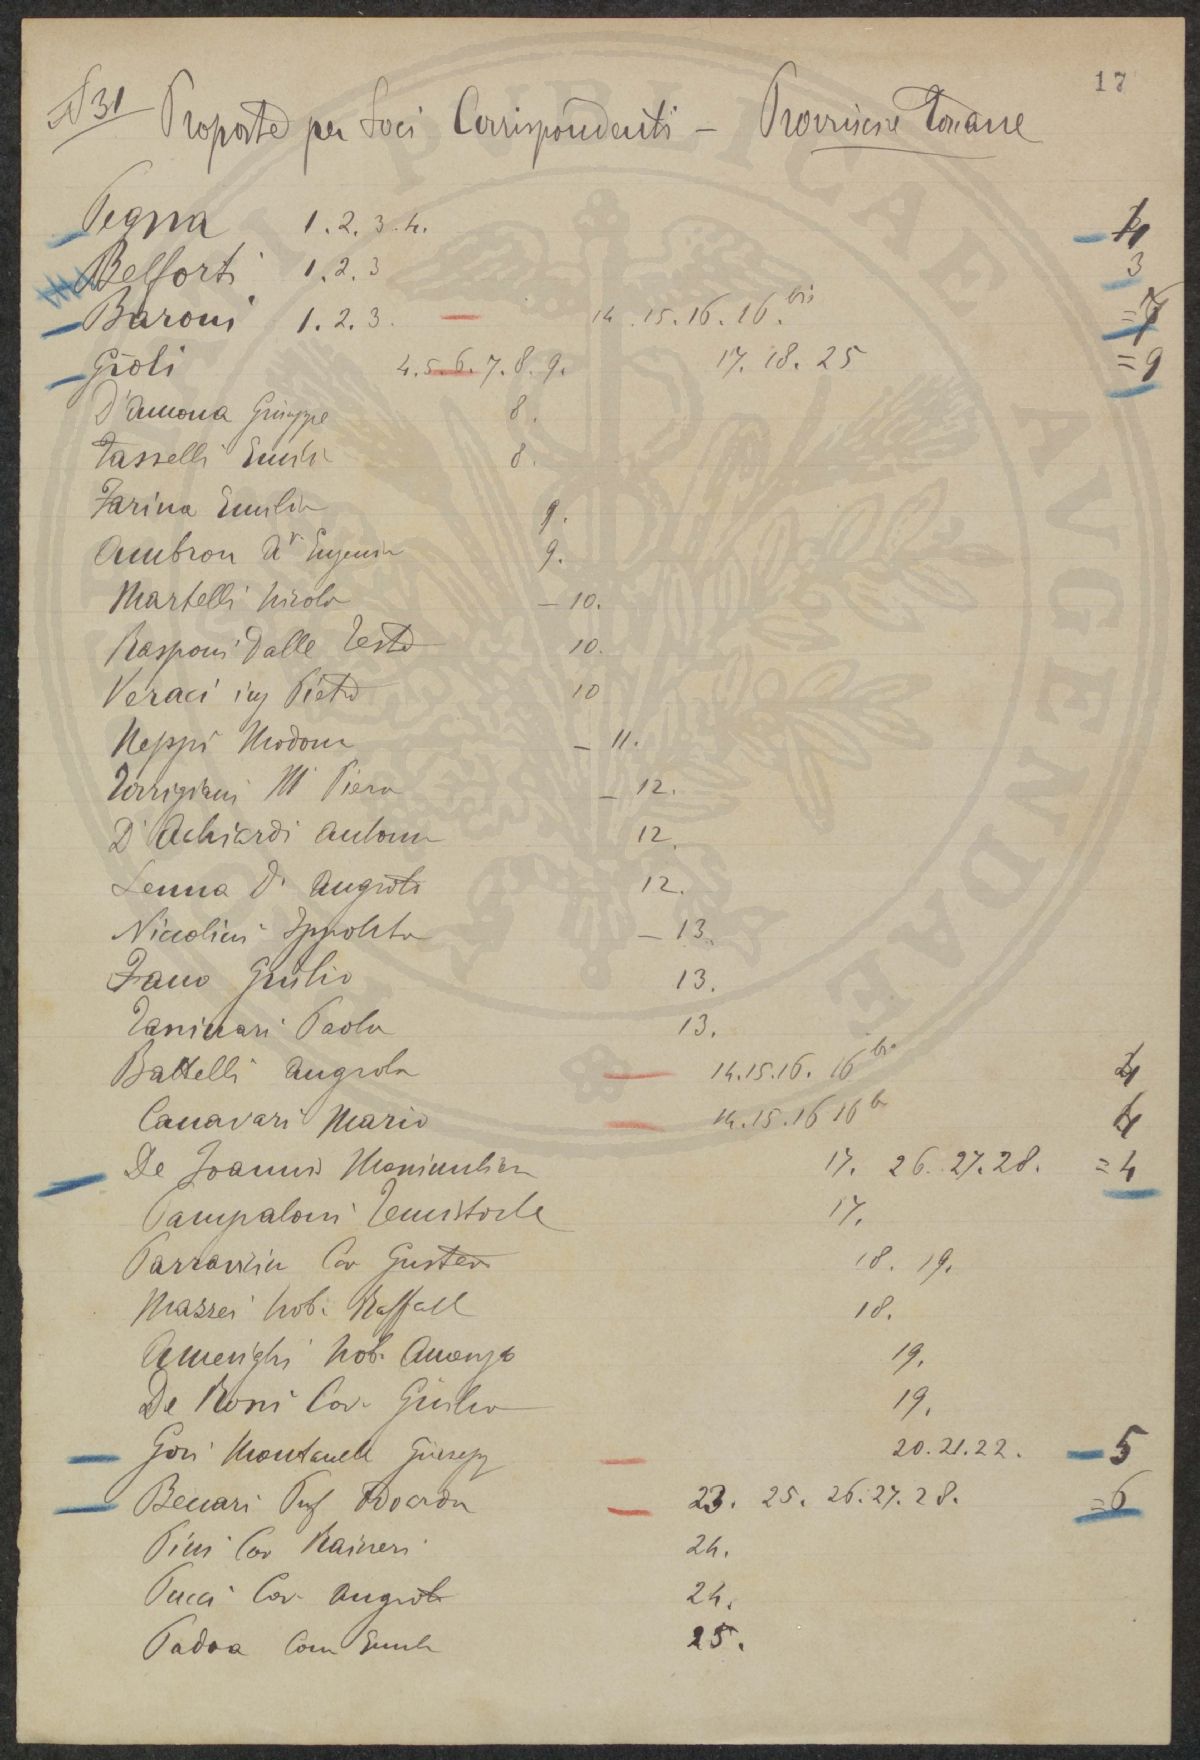 17
N 31 Proposte per Soci Corrispondenti - Provincie Toscane
Pegna 1. 2. 3. 4. 4
Belforti 1. 2. 3 3
Baroni 1. 2. 3. 14. 15. 16. 16. bis = 7
Gioli 4. 5. 6. 7. 8. 9. 17. 18. 25 = 9
D'Ancona Giuseppe 8.
Tasselli Emilio 8.
Farina Emilio 9.
Ambron Eugenio 9.
Martelli Nicola - 10.
Rasponi Dalle Teste 10.
Veraci ing Pietro 10
Neppi Modona - 11.
Torrigiani Mse Piero - 12.
D'Achiardi Antonio 12.
Senna D. Angiolo 12.
Niccolini Ippolito - 13.
Fano Giulio 13.
Taninari Paolo 13.
Battelli Angiolo 14. 15. 16. 16 bis 4
Canavari Mario 14. 15. 16 16 b 4
De Joannis 17. 26. 27. 28. = 4
Pampaloni Temistocle 17.
Parravicin Cav Gustavo 18. 19.
Mazzei Nob. Raffaele 18.
Amerighi Nob. 19.
De Rossi Cav. Giulio 19.
Gori Montanelli Giuseppe 20. 21. 22. 5
Beccari Prof Odoardo 23. 25. 26. 27. 28. = 6
Pini Cav Raineri 24.
Pucci Cav. Angiolo 24.
Padoa Com Emilio 25.
REI PVBLICAE AVGENDAE